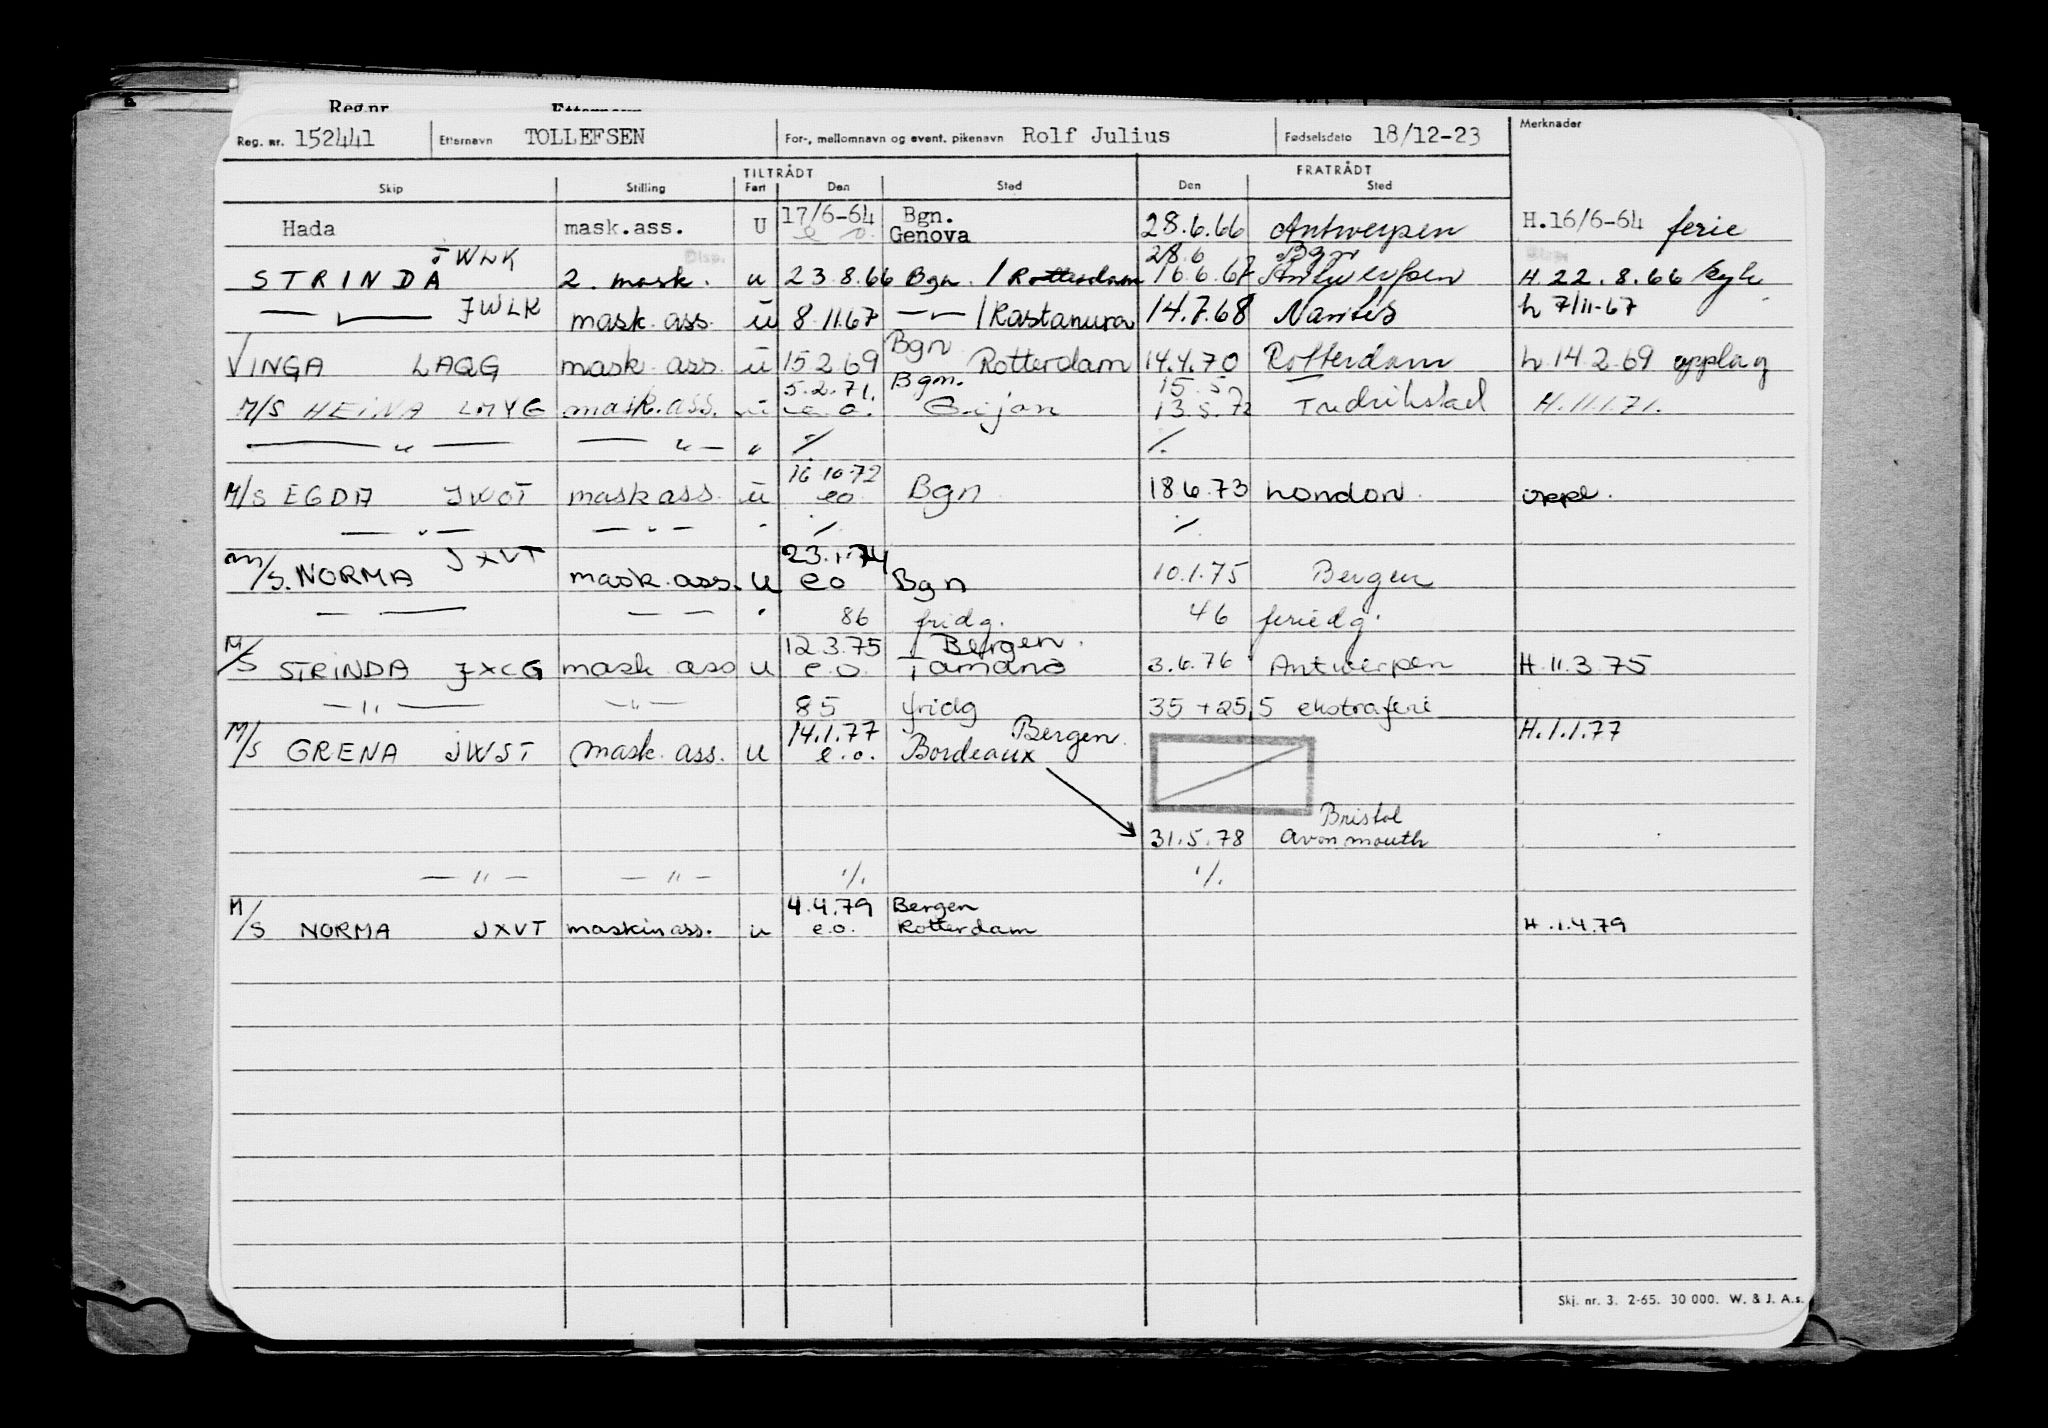 Reg.nr
Reg. nr. 152441 Etternavn TOLLEFSEN For-, mellomnavn og event. pikenavn Rolf Julius Fødselsdato 18/12-23 Merknader
TILTRÅDT FRATRÅDT
Skip Stilling Fart Den Sted Den Sted
17/6-64 Bgn.
Hada mask.ass. U e o. Genova 28.6.66 Antwerpen H.16/6-64 ferie
JWLK Disp. 28.6 Bgn
STRINDA 2. mask. u 23.8.66 Bgn. / Rotterdam 16.6.67 Antwerpen H 22.8.66
JWLK mask. ass. ü 8.11.67 — " — / Rastanura 14.7.68 Nantes h 7/11-67
Bgn
VINGA LAQG mask. ass. ü 15 2 69 Rotterdam 14.4.70 Rotterdam h 14 2.69 opplag
5.2.71. Bgn. 15.5
M/S HEINA LMYG mask. ass. ü e. o. Gijon 13.5.72 Fredrikstad H.11.1.71.
— " — — " — " ./. ./.
16 10 72
M/S EGDA JWOT mask ass. ü eo Bgn 18 6.73 London. oppl.
— " — — " — " ./. ./.
JXVT 23.1.74
M/S. NORMA mask. ass. u eo Bgn 10.1.75 Bergen
— — — — " 86 fridg. 46 feriedg.
12 3.75 Bergen.
M/S STRINDA JXCG mask ass u e.o. Tamano 3.6.76 Antwerpen H.11.3.75
— " — — " — 85 fridg 35 + 25,5 ekstraferie
14.1.77 Bergen H.1.1.77
M/S GRENA JWST Mask. ass. u e.o. Bordeaux
Bristol
31.5.78 Avonmouth
— " — — " — ./. ./.
4.4.79 Bergen
M/S NORMA JXVT maskinass. u e.o. Rotterdam H.1.4.79
Skj. nr. 3. 2-65. 30 000. W. & J. A.s.